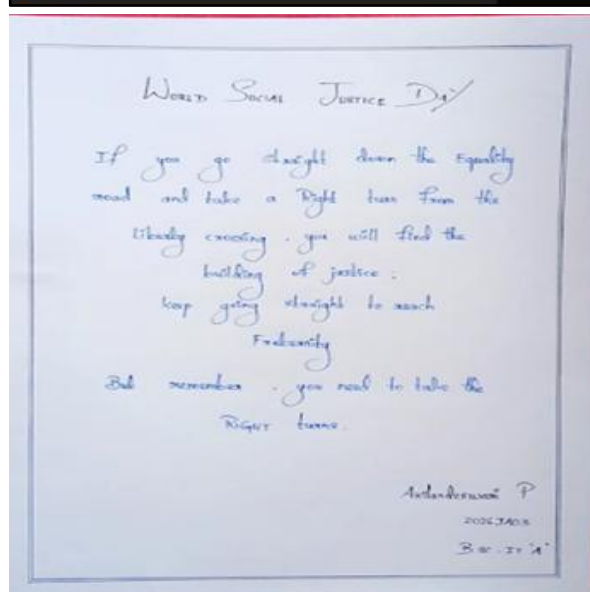 WORLD SOCIAL JUSTICE DAY
If you go straight down the Equality
road and take a Right turn from the
liberty crossing, you will find the
building of justice.
keep going straight to reach
Fraternity
But remember, you need to take the
RIGHT turns.
P
B SC - IT "A"